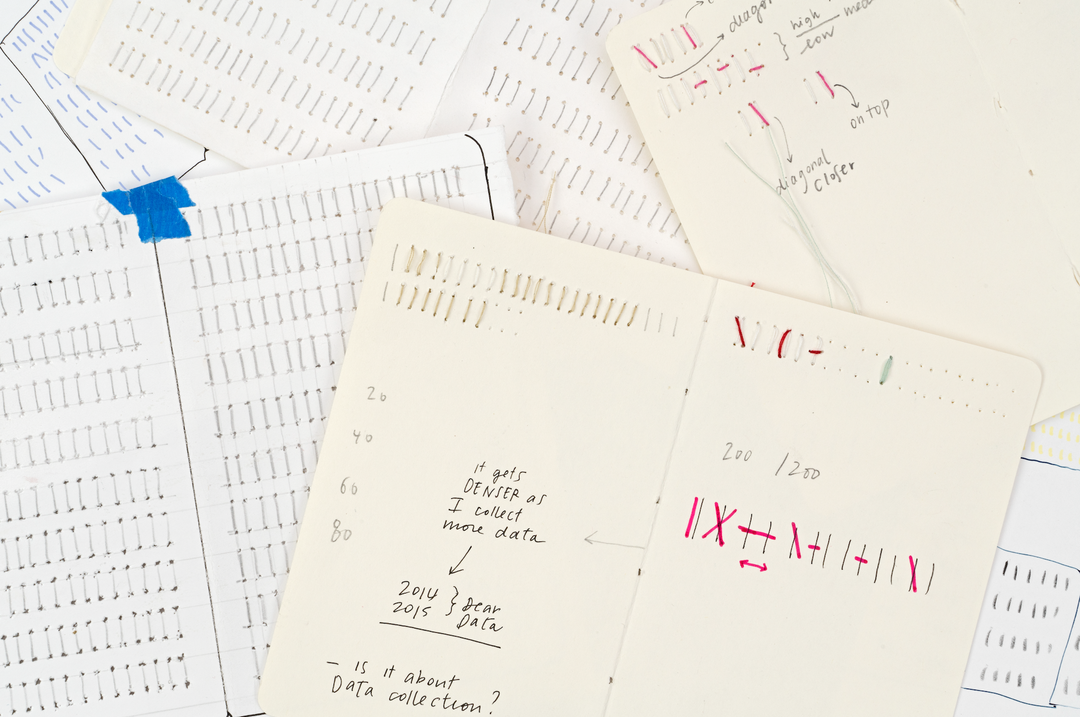 high
low
on top
diagonal
closer
20
40
60
80
it gets
DENSER as
I collect
more data
2014 } Dear
2015 Data
- is it about
Data collection?
200 /200